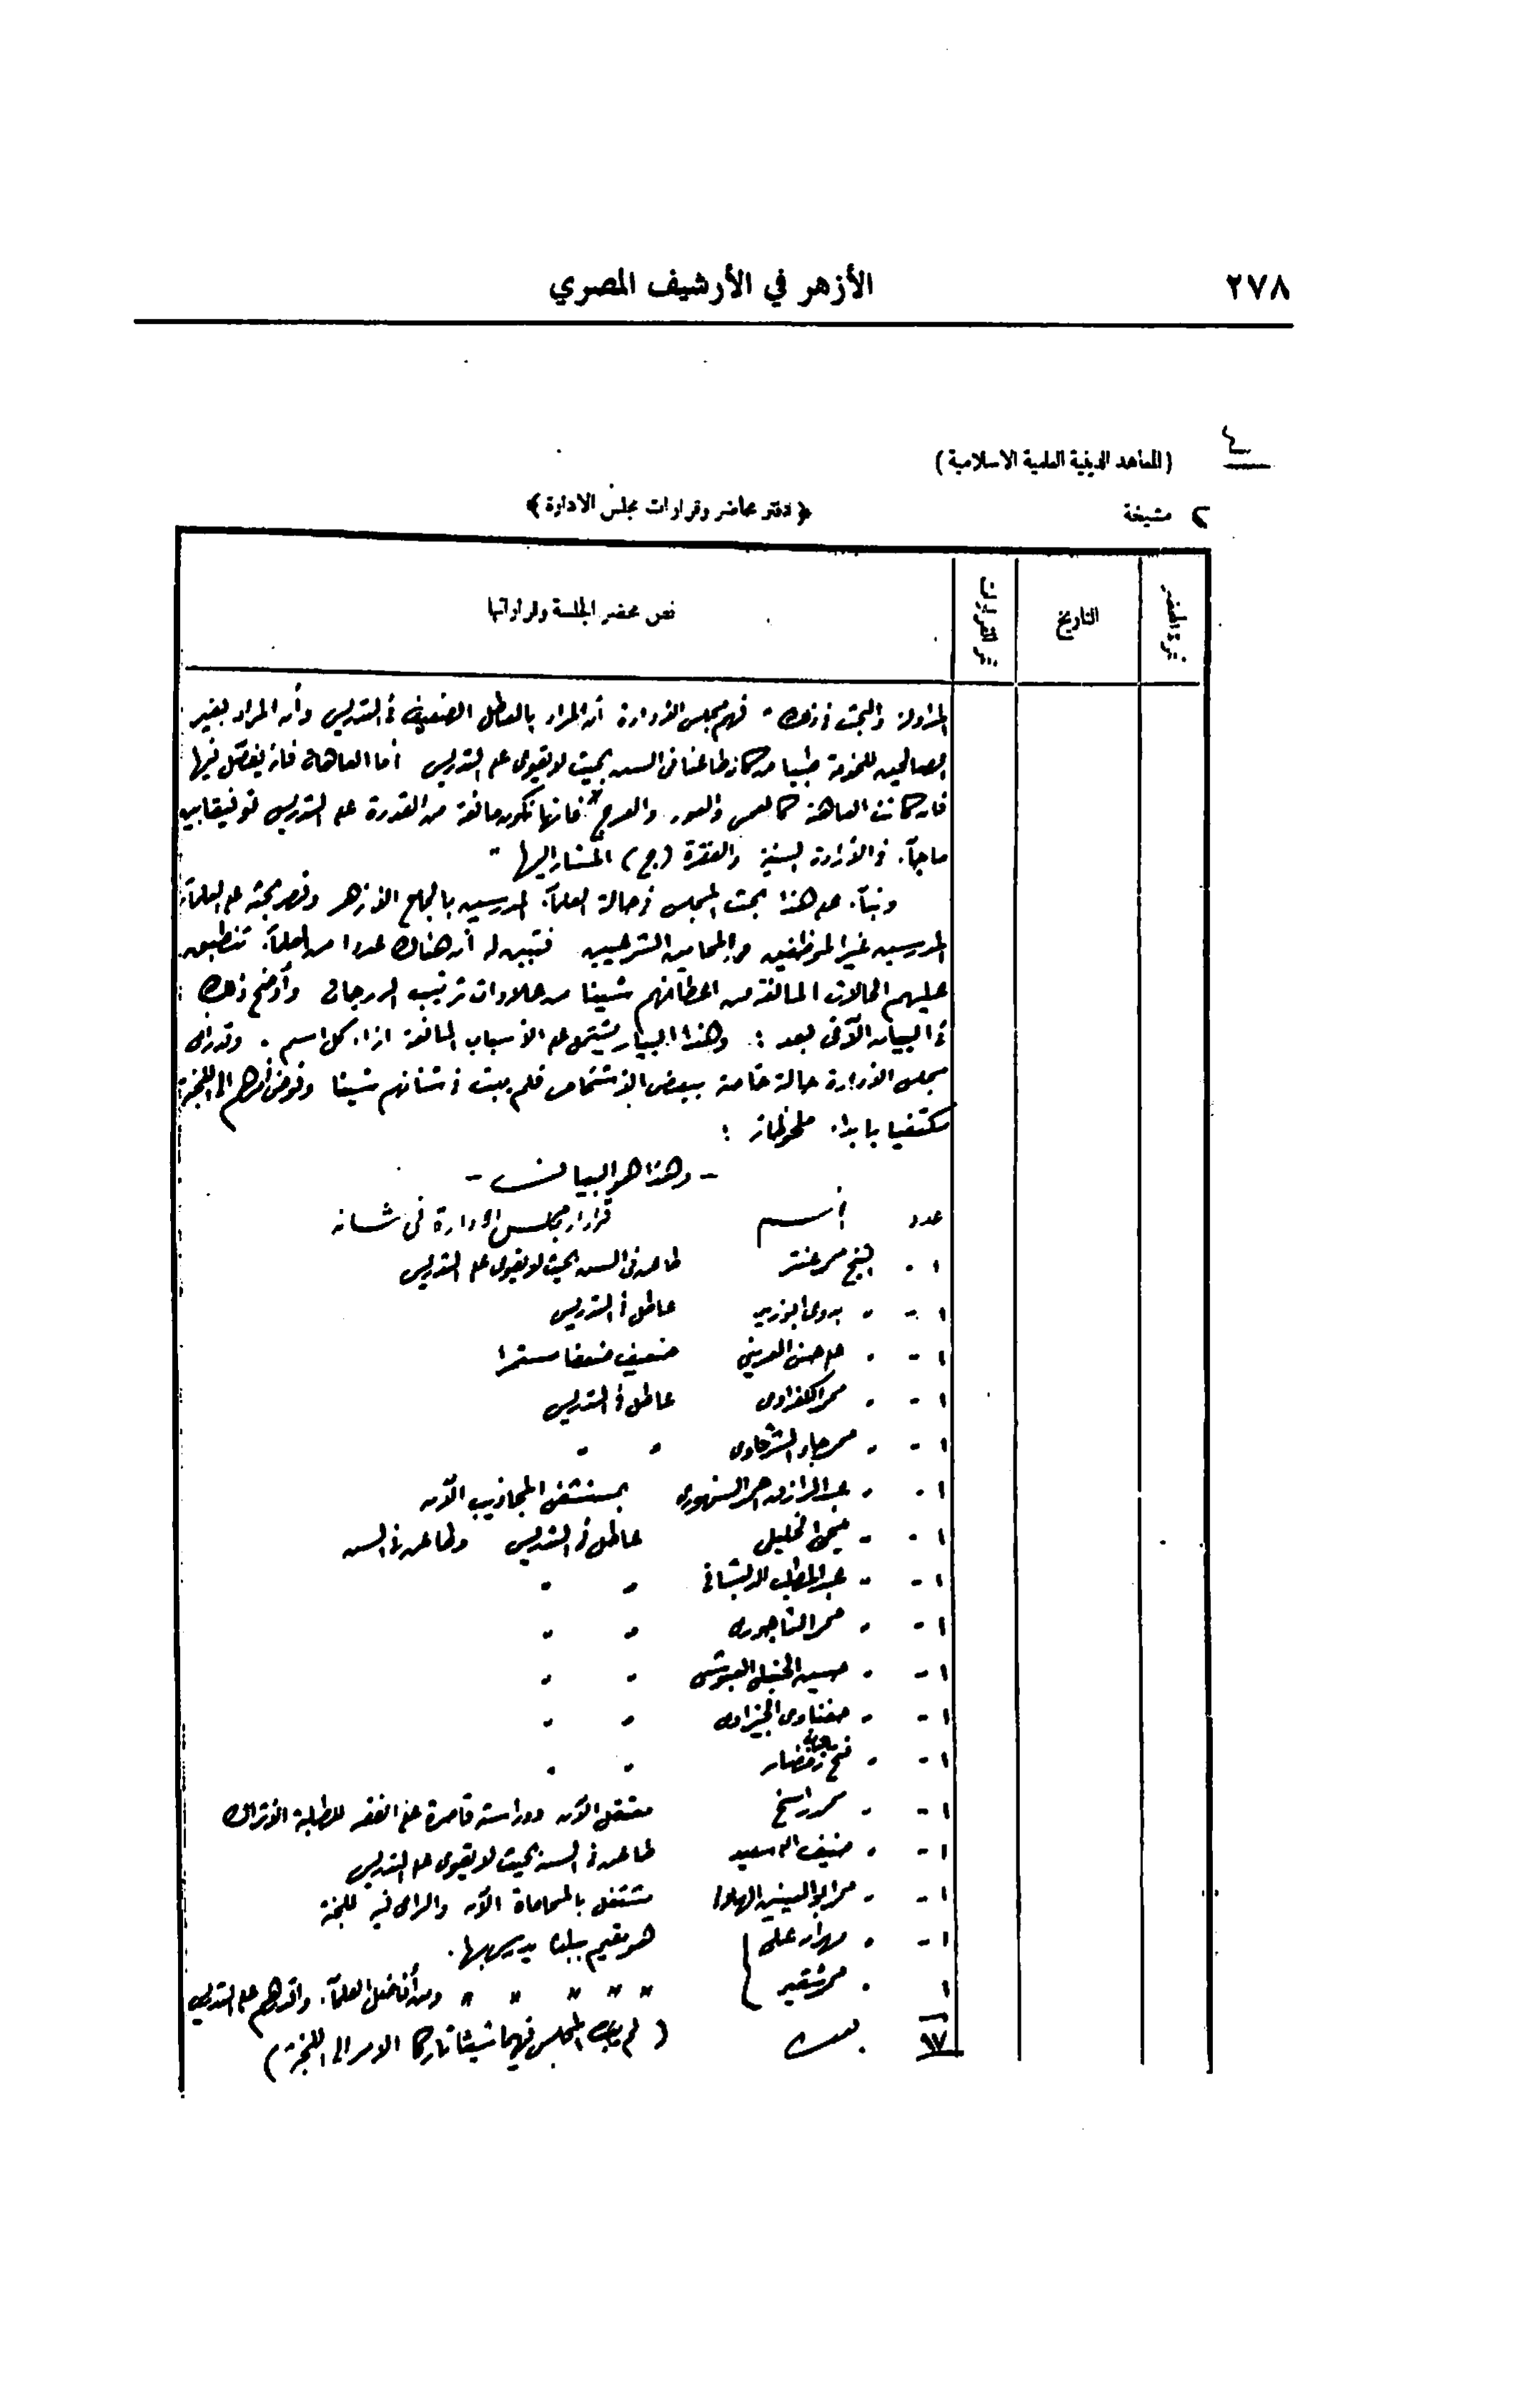 ٢٧٨
الأزهر في الأرشيف المصري
٤
(المعاهد الدينية العلمية الاسلامية)
٢ مشيخة
﴿دفتر محاضر وقرارات مجلس الادارة﴾
نمرة المحضر
التاريخ
نمر القرارات
نص محضر الجلسة وقراراتها
المداولة والبحث في ذلك " فهم مجلس الادارة أن المراد بالعاطل الضعيف في التدريس وأن المراد بغير
الصالحين للخدمة طبيا من كان طاعنا في السن بحيث لا يقوى على التدريس أما العاهة فانه يفصل فيها
فان كانت العاهة كالعمى والعور والعرج فانها تكون مانعة من القدرة على التدريس توفيقا بين
ما جاء في الأرادة السنية والفقرة (ج) المشار اليها "
وبناء على هذا بحث المجلس في حالة العلماء المدرسين بالجامع الازهر وقصر بحثه على العلماء
المدرسين غير الموظفين والمحامين الشرعيين فتبين له أن هناك عددا من العلماء تنطبق
عليهم الحالات المانعة من اعطائهم شيئا من علاوات ترتيب الدرجات وأوضح ذلك
في البيان الآتى بعد : وهذا البيان يشتمل على الأسباب المانعة ازاء كل اسم . وقد رأى
مجلس الادارة حالة خاصة ببعض الاشخاص فلم يبت في شأنهم شيئا وفوض أمرهم الى اللجنة
مكتفيا بابداء ملحوظاته :
- وهذا هو البيان -
عدد اسم قرار مجلس الادارة فى شأنه
١ - الشيخ محمد عنتر طاعن فى السن بحيث لا يقوى على التدريس
١ - " بدوى ابوزيد عاطل في التدريس
١ - " على حسن العرينى ضعيف ضعفا مستمرا
١ - " محمد الكفراوى عاطل في التدريس
١ - " محمد جاد الشرقاوى " "
١ - " عبد الرازق احمد السنهورى بمستشفى المجاذيب الآن
١ - " الخليلى عاطل في التدريس وطاعن في السن
١ - " عبد المطلب " "
١ - " محمد التاجورى " "
١ - " حسين الحنبلى " "
١ - " حفناوى الجيزاوى " "
١ - " رمضان " "
١ - " محمد راسخ معتقل الآن ودراسته قاصرة على الفقه للطلبة الاتراك
١ - " السعيد طاعن في السن بحيث لا يقوى على التدريس
١ - " محمد ابو العينين مشتغل بالمحاماة الآن والرأى فيه للجنة
١ - " على هو مقيم ببلده يدرس بها .
١ " محمد شقير " " " " ومن أفاضل العلماء وأقدرهم على التدريس
١٧ (لم يبت المجلس فيهما شيئا تاركا الامر الى اللجنة)